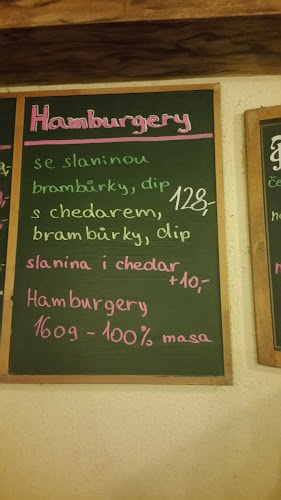 Hamburgery
se slaninou
brambůrky, dip
128,-
s chedarem,
brambůrky, dip
slanina i chedar
+10,-
Hamburgery
160g - 100% masa